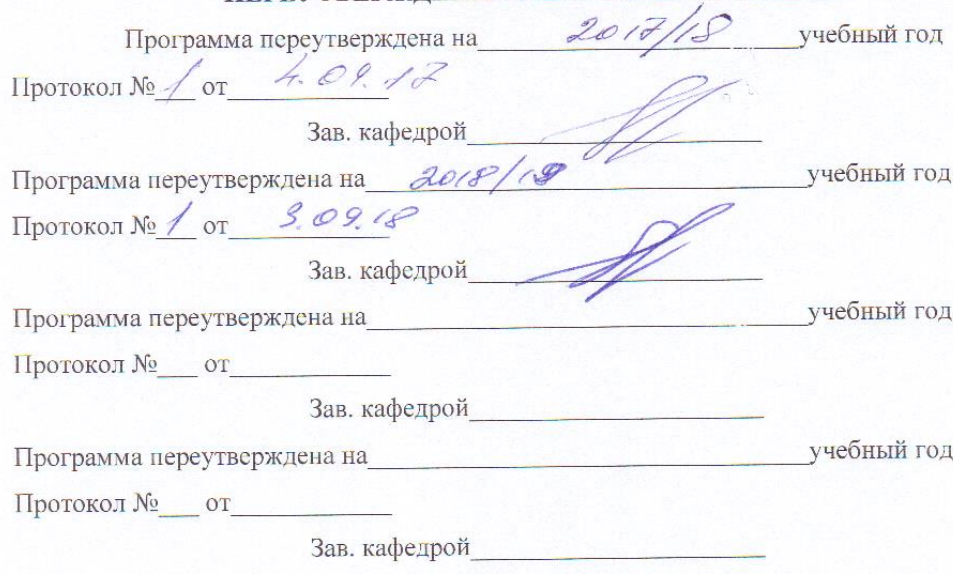 Программа переутверждена на 2017/18 учебный год
Протокол № 1 от 4.09.17
Зав. кафедрой
Программа переутверждена на 2018/19 учебный год
Протокол № 1 от 3.09.18
Зав. кафедрой
Программа переутверждена на учебный год
Протокол № от
Зав. кафедрой
Программа переутверждена на учебный год
Протокол № от
Зав. кафедрой